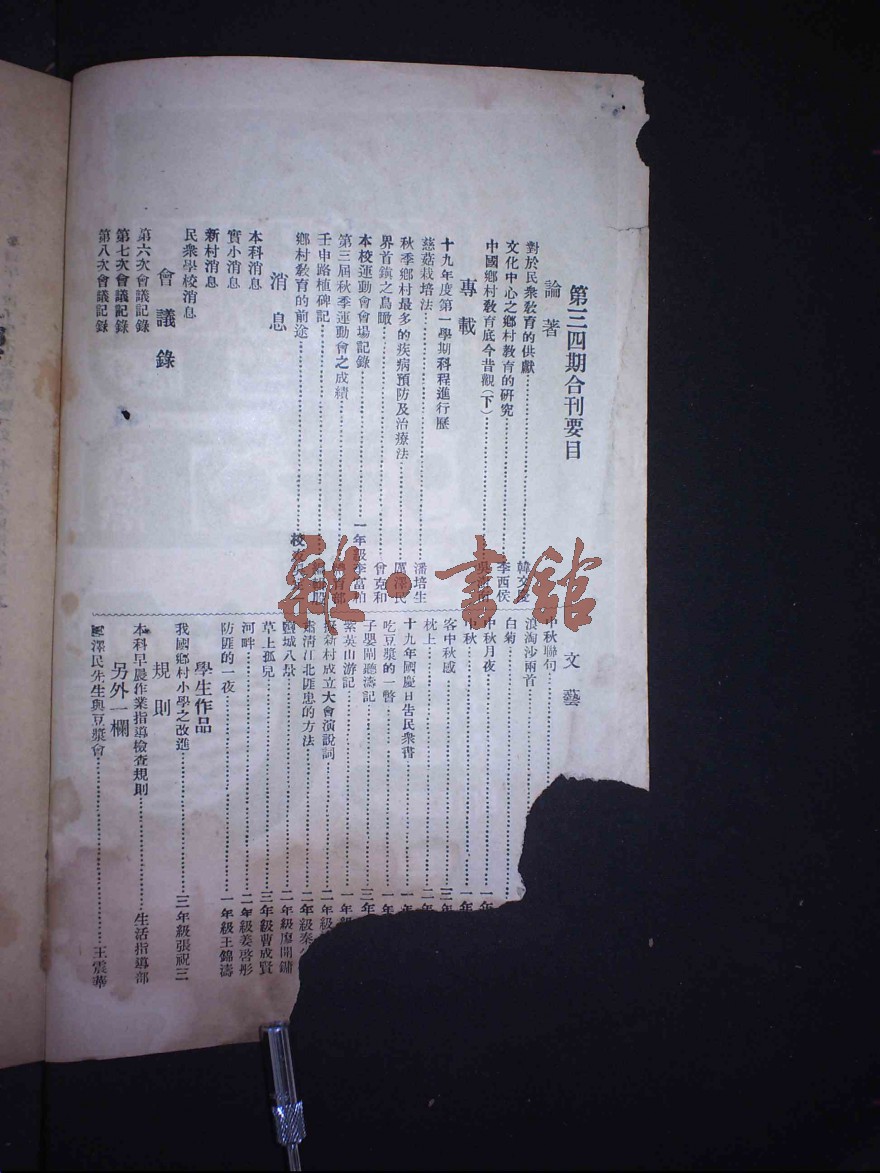 第三四期合刊要目
論著
對於民衆敎育的供獻
文化中心之鄉村敎育的研究 李西侯
中國鄉村敎育底今昔觀(下)
專載
十九年度第一學期科程進行歷
慈菇栽培法 潘培生
秋季鄉村最多的疾病預防及治療法 澤民
界首鎮之鳥瞰 曾克和
本校運動會會場記錄 一年級李富柏
第三屆秋季運動會之成績
壬申路植碑記
鄉村敎育的前途 校
消息
本科消息
實小消息
新村消息
民衆學校消息
會議錄
第六次會議記錄
第七次會議記錄
第八次會議記錄
文藝
中秋聯句
浪淘沙兩首
白菊
中秋月夜 一年
中秋 一年
客中秋感 三年
枕上 二年
十九年國慶日告民衆書 一年
吃豆漿的一瞥 一年
子嬰閘聽濤記 三年
紫英山游記 一年級
新村成立大會演說詞 二年級
肅清江北匪患的方法 二年級秦
鹽城八景 二年級廖開鏞
草上孤兒 三年級曹成賢
河畔 二年級姜啓彤
防匪的一夜 一年級王錦濤
學生作品
我國鄉村小學之改進 三年級張祝三
規則
本科早晨作業指導檢查規則 生活指導部
另外一欄
澤民先生與豆漿會 王震華
雜書館